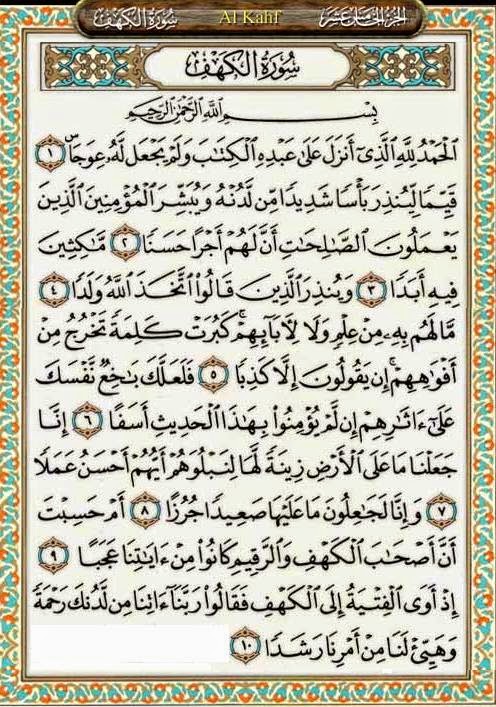 سُورَةُ الكَهْفِ Al Kahf الجُزْءُ الخَامِسَ عَشَرَ
سُورَةُ الكَهْفِ
بِسْمِ اللَّهِ الرَّحْمَٰنِ الرَّحِيمِ
الْحَمْدُ لِلَّهِ الَّذِي أَنزَلَ عَلَىٰ عَبْدِهِ الْكِتَٰبَ وَلَمْ يَجْعَل لَّهُۥ عِوَجَاۜ ١
قَيِّمًا لِّيُنذِرَ بَأْسًا شَدِيدًا مِّن لَّدُنْهُ وَيُبَشِّرَ الْمُؤْمِنِينَ الَّذِينَ
يَعْمَلُونَ الصَّٰلِحَٰتِ أَنَّ لَهُمْ أَجْرًا حَسَنًا ٢ مَّٰكِثِينَ
فِيهِ أَبَدًا ٣ وَيُنذِرَ الَّذِينَ قَالُوا۟ اتَّخَذَ اللَّهُ وَلَدًا ٤
مَّا لَهُم بِهِۦ مِنْ عِلْمٍ وَلَا لِءَابَآئِهِمْ ۚ كَبُرَتْ كَلِمَةً تَخْرُجُ مِنْ
أَفْوَٰهِهِمْ ۚ إِن يَقُولُونَ إِلَّا كَذِبًا ٥ فَلَعَلَّكَ بَٰخِعٌ نَّفْسَكَ
عَلَىٰٓ ءَاثَٰرِهِمْ إِن لَّمْ يُؤْمِنُوا۟ بِهَٰذَا الْحَدِيثِ أَسَفًا ٦ إِنَّا
جَعَلْنَا مَا عَلَى الْأَرْضِ زِينَةً لَّهَا لِنَبْلُوَهُمْ أَيُّهُمْ أَحْسَنُ عَمَلًا
٧ وَإِنَّا لَجَٰعِلُونَ مَا عَلَيْهَا صَعِيدًا جُرُزًا ٨ أَمْ حَسِبْتَ
أَنَّ أَصْحَٰبَ الْكَهْفِ وَالرَّقِيمِ كَانُوا۟ مِنْ ءَايَٰتِنَا عَجَبًا ٩
إِذْ أَوَى الْفِتْيَةُ إِلَى الْكَهْفِ فَقَالُوا۟ رَبَّنَآ ءَاتِنَا مِن لَّدُنكَ رَحْمَةً
وَهَيِّئْ لَنَا مِنْ أَمْرِنَا رَشَدًا ١٠